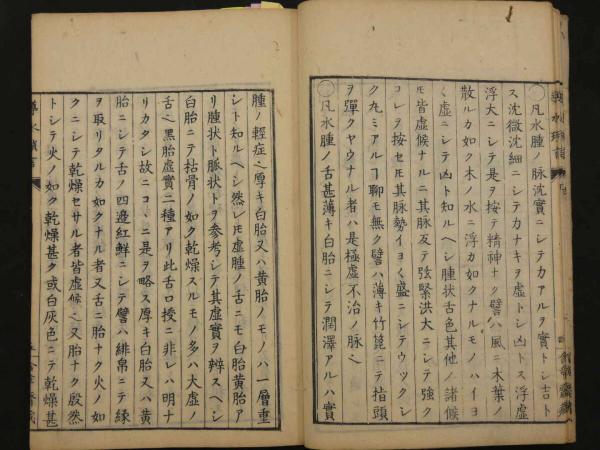 〇凡水腫ノ脉沈實ニシテカアルヲ實トシ吉ト
ス沈微沈細ニシテカナキヲ虚トシ凶トス浮虚
浮大ニシテ是ヲ按テ精神ナク譬ハ風ニ木葉ノ
散ルカ如ク木ノ水ニ浮カ如クナルモノハイヨ
く虚ニシテ凶ト知ルヘシ腫状舌色其他ノ諸候
モ皆虚候ナルニ其脉反テ弦緊洪大ニシテ強ク
コレヲ按セ𪜈其脉勢イヨく盛ニシテウツクシ
ク丸ミアルヿ聊モ無ク譬ハ薄キ竹箆ニテ指頭
ヲ彈クヤウナル者ハ是極虚不治ノ脉也
〇凡水腫ノ舌甚薄キ白胎ニシテ潤澤アルハ實
腫ノ輕症也厚キ白胎又ハ黄胎ノモノハ一層重
シト知ルヘシ然レ𪜈虚腫ノ舌ニモ白胎黄胎ア
リ腫状ト脉状トヲ参考シテ其虚實ヲ辨スヘシ
白胎ニテ枯骨ノ如ク乾燥スルモノ多ハ大虚ノ
舌也黒胎虚實二種アリ此舌口授ニ非レハ明ナ
リカタシ故ニコヽニ是ヲ略ス厚キ白胎又ハ黄
胎ニシテ舌ノ四邊紅鮮ニシテ譬ハ緋帛ニテ縁
ヲ取リタルカ如クナル者又舌ニ胎ナク火ノ如
クニシテ乾燥セサル者皆虚候也又胎ナク殷然
トシテ火ノ如ク乾燥甚ク或白灰色ニテ乾燥甚